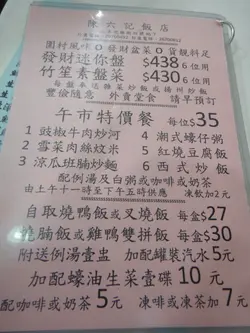 陳六記飯店
圍村風味○發財盆菜○貨靚料足
發財迷你盤 $438 6位用
竹笙素盤菜 $430 6位用
豐儉隨意 外賣堂食 請早預訂
午市特價餐 每位35
1 豉椒牛肉炒河 4 潮式蠔仔粥
2 雪菜肉絲炆米 5 紅燒豆腐飯
3 涼瓜班腩炒麵 6 西式炒飯
配例湯及白粥或咖啡或奶茶
由上午十一時至下午五時供應 凍飲加2元
自取燒鴨飯或叉燒飯 每盒$27
燒腩飯或雞鴨雙拼飯 每盒$30
附送例湯壹盅 加配罐裝汽水5元
加配蠔油生菜壹碟10元
配咖啡或奶茶5元 凍咖或凍茶加7元